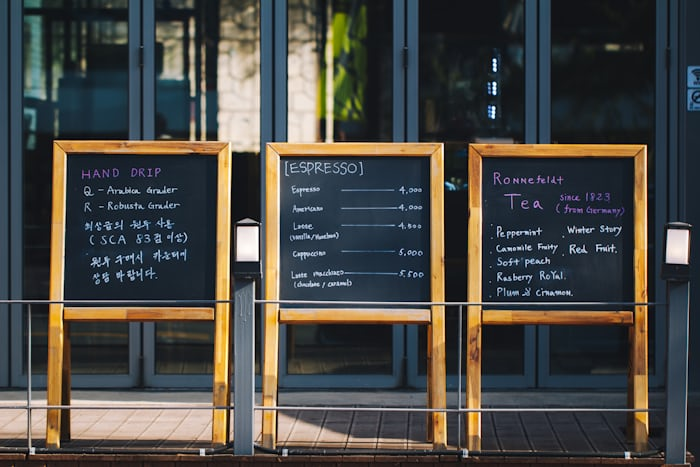 HAND DRIP
Q - Arabica Grader
R - Robusta Grader
최상급의 원두 사용
(SCA 83점 이상)
원두구매시 카운터에
상담 바랍니다.
[ESPRESSO]
Espresso 4,000
Americano 4,000
Latte 4,500
(vanilla / Hazelnut)
Cappuccino 5,000
Latte macchiato 5,500
(chocolate / caramel)
Ronnefeldt
Tea since 1823
(from Germany)
. Peppermint . Winter Story
. Camomile Fruity . Red Fruit.
. Soft peach
. Rasberry Royal.
. Plum & cinnamon.